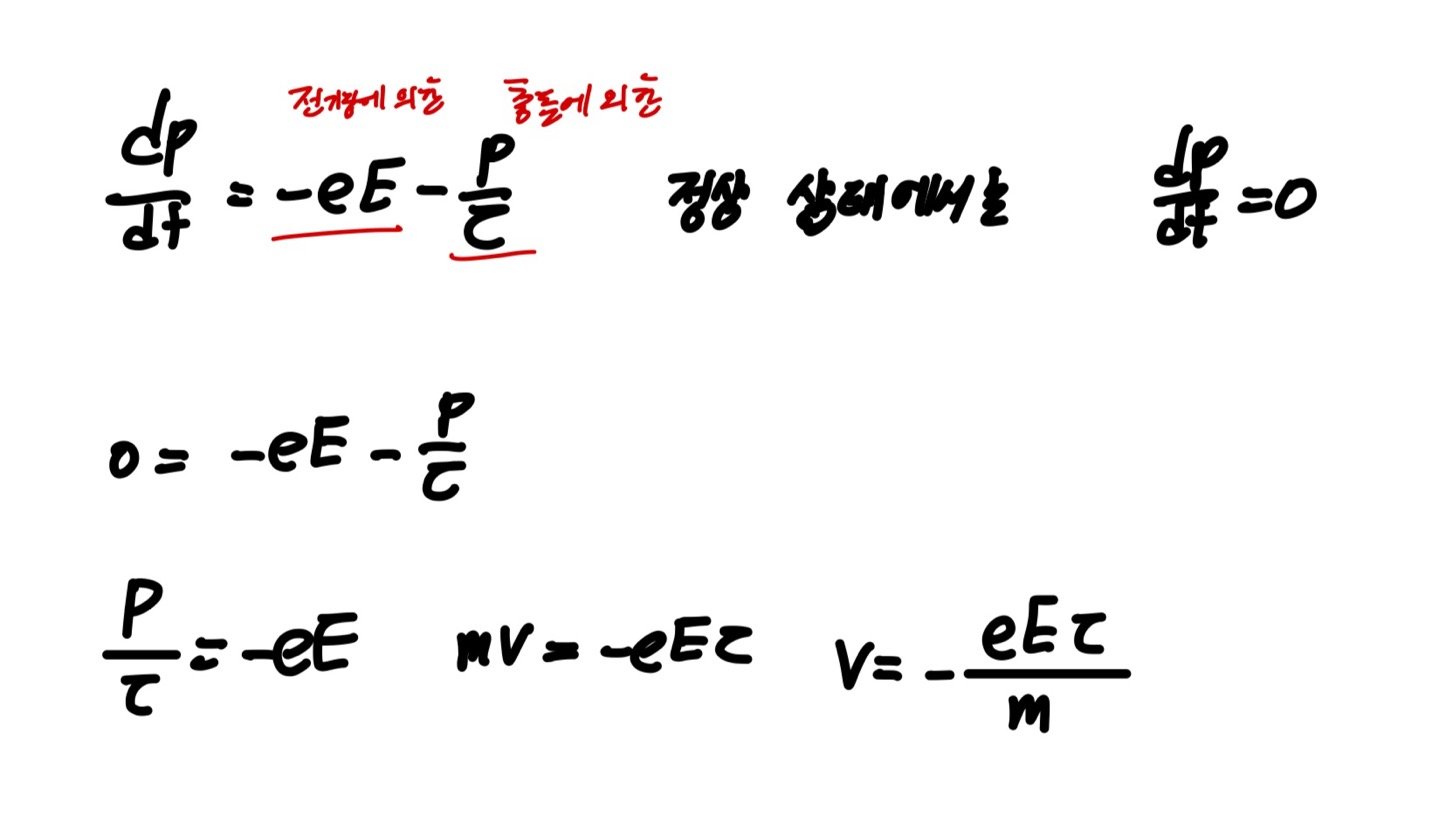 전기장에 의한 충돌에 의한
dp/dt = -eE - p/τ 정상 상태에서는 dp/dt = 0
0 = -eE - p/τ
P/τ = -eE mv = -eEτ v = - eEτ/m